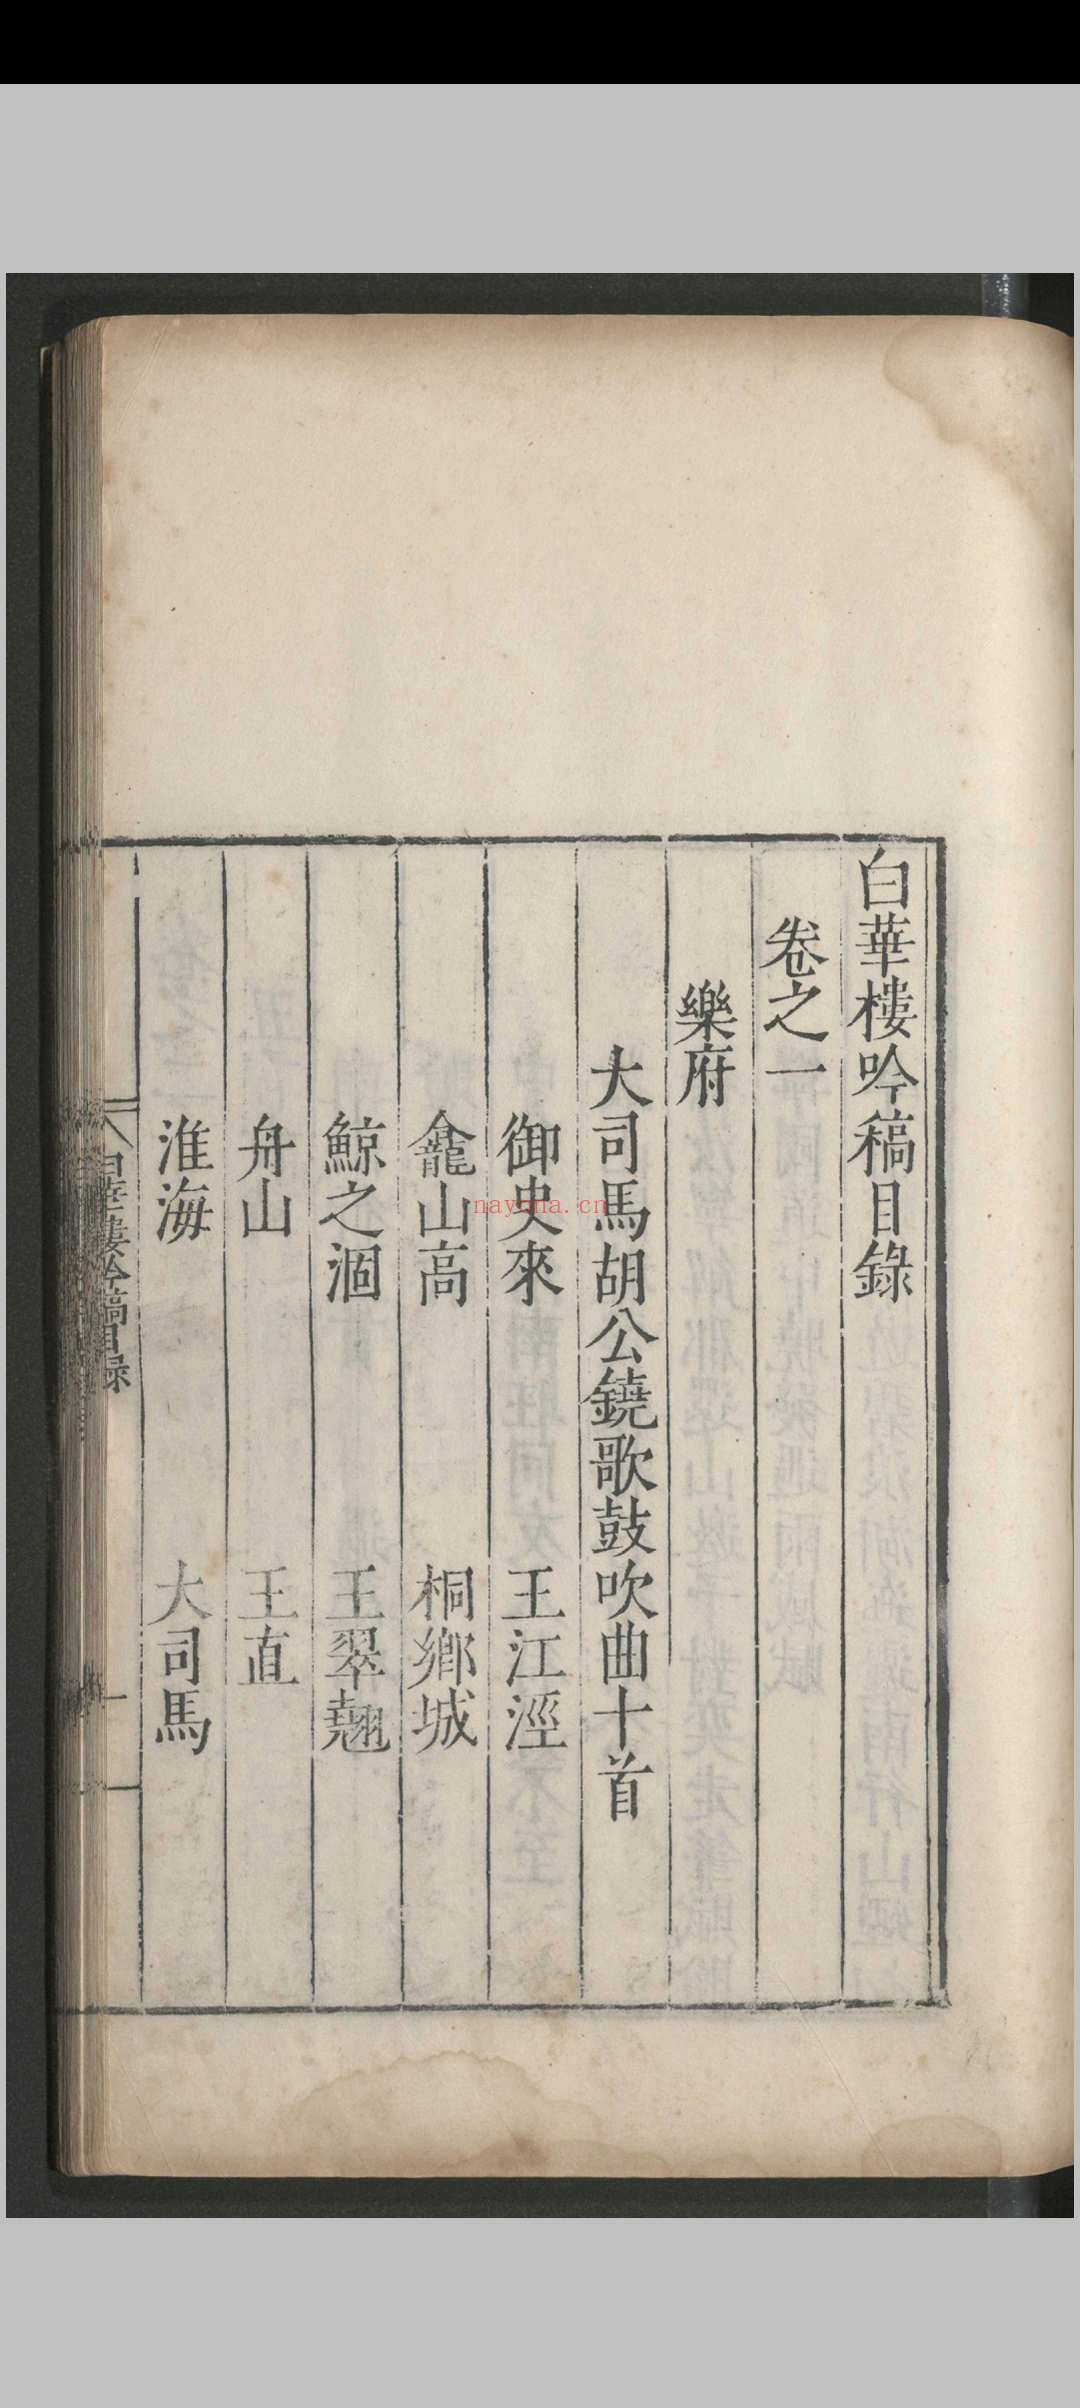 白華樓吟稿目錄
卷之一
樂府
大司馬胡公鐃歌鼓吹曲十首
御史來 王江涇
龕山高 桐鄉城
鯨之涸 王翠翹
舟山 王直
淮海 大司馬
白華樓吟稿目錄
一
nayona.cn